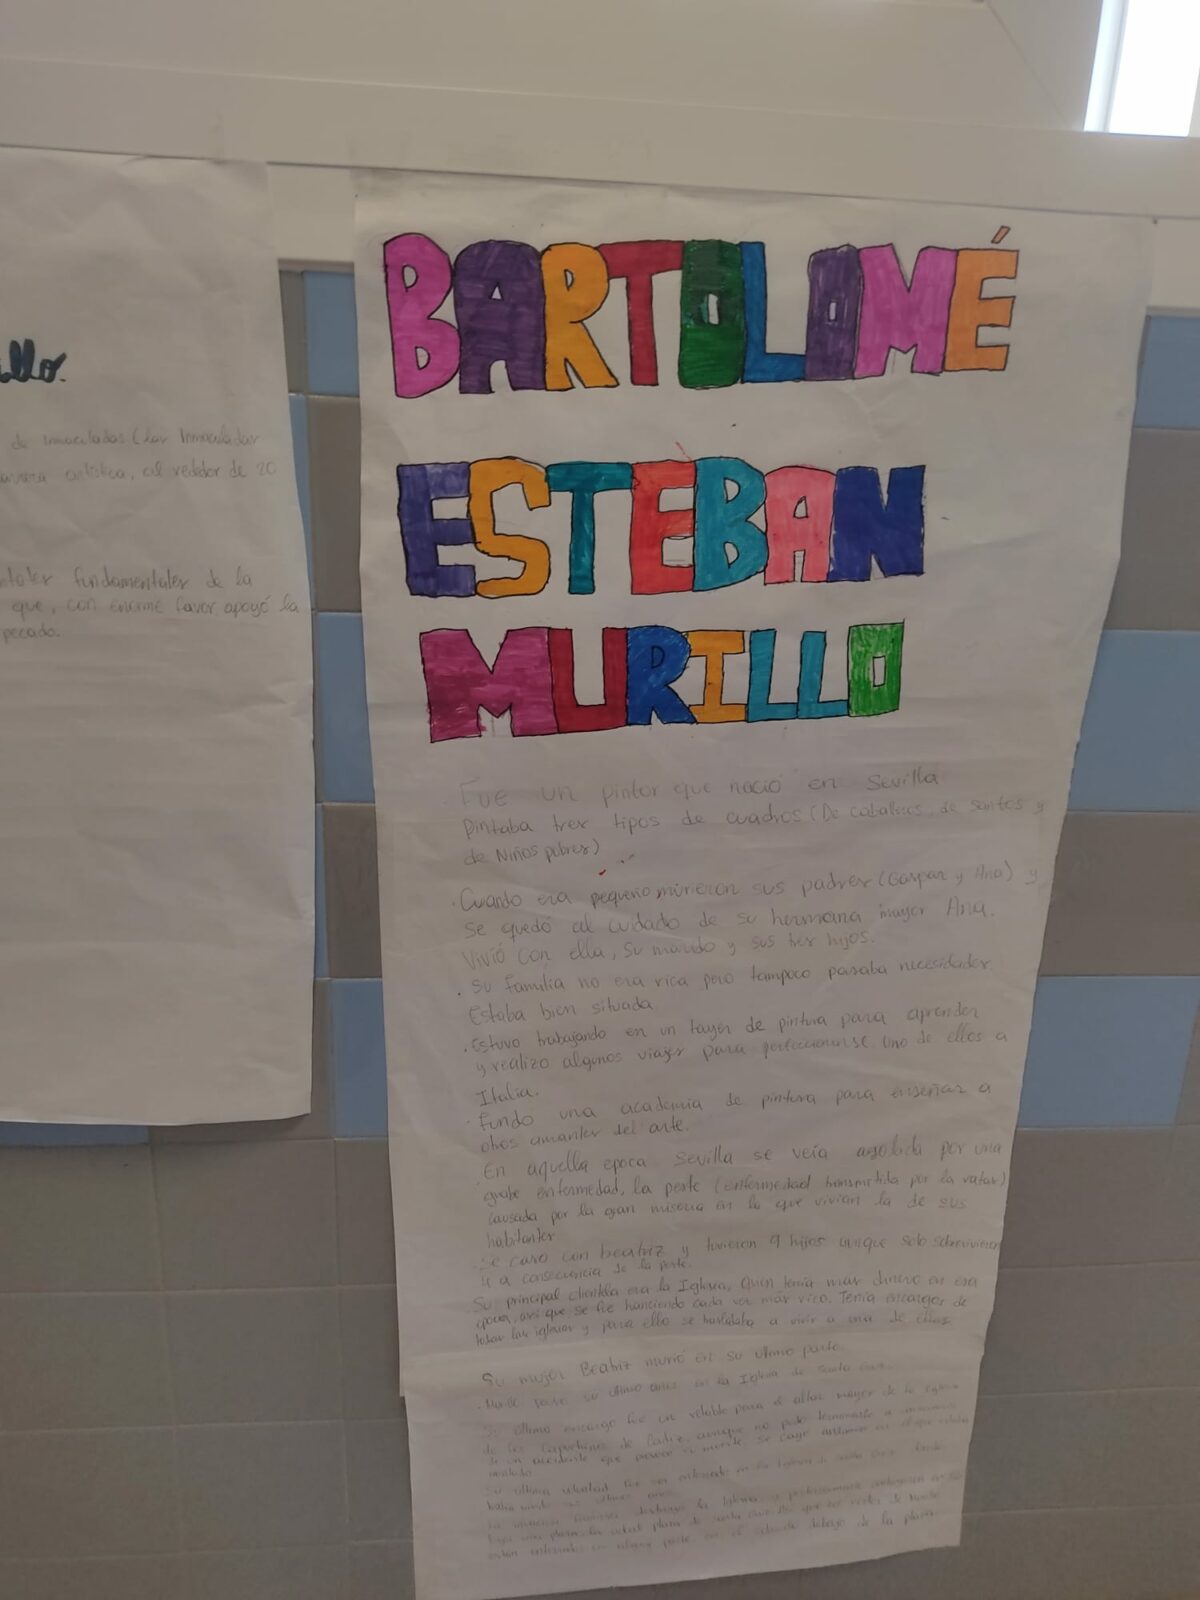 llo.
de inmaculadas (las Inmaculadas
artística, al rededor de 20
fundamentales de la
que, con enorme favor, apoyó la
pecado.
BARTOLOMÉ
ESTEBAN
MURILLO
Fue un pintor que nació en Sevilla
pintaba tres tipos de cuadros (De caballeros, de santos y
de Niños pobres)
· Cuando era pequeño, murieron sus padres (Gaspar y Ana) y
se quedó al cuidado de su hermana mayor Ana.
Vivió con ella, su marido y sus tres hijos.
· Su familia no era rica pero tampoco pasaba necesidades
Estaba bien situada.
· Estuvo trabajando en un tayer de pintura para aprender
y realizo algunos viajes para perfeccionarse. Uno de ellos a
Italia.
· Fundó una academia de pintura para enseñar a
otros amantes del arte.
En aquella epoca Sevilla se veía asolada por una
grabe enfermedad, la peste (enfermedad transmitida por la ratas)
causada por la gran miseria en la que vivían la de sus
habitantes
· Se caso con beatriz y tuvieron 9 hijos aunque solo sobrevivieron
4 a consecuencia de la peste.
Su principal clientela era la Iglesia, Quien tenía mas dinero en esa
epoca, así que se fue hanciendo cada vez más rico. Tenía encargos de
todas las iglesias y para ello se trasladaba a vivir a una de ellas.
Su mujer Beatriz murió en su último parto.
· Murillo paso su últimos años en la Iglesia de Santa Cruz.
Su último encargo fue un retablo para el altar mayor de la iglesia
de los Capuchinos de Cadiz, aunque no pudo terminarlo a
de un accidente que provocó su muerte. Se cayo del andamio en el que estaba
Su última voluntad fue ser enterrado en la Iglesia de Santa Cruz donde
había vivido sus últimos años.
destruyó la Iglesia y
una plaza, la actual plaza de Santa Cruz. los restos de Murillo
están enterrados en alguna parte debajo de la plaza.